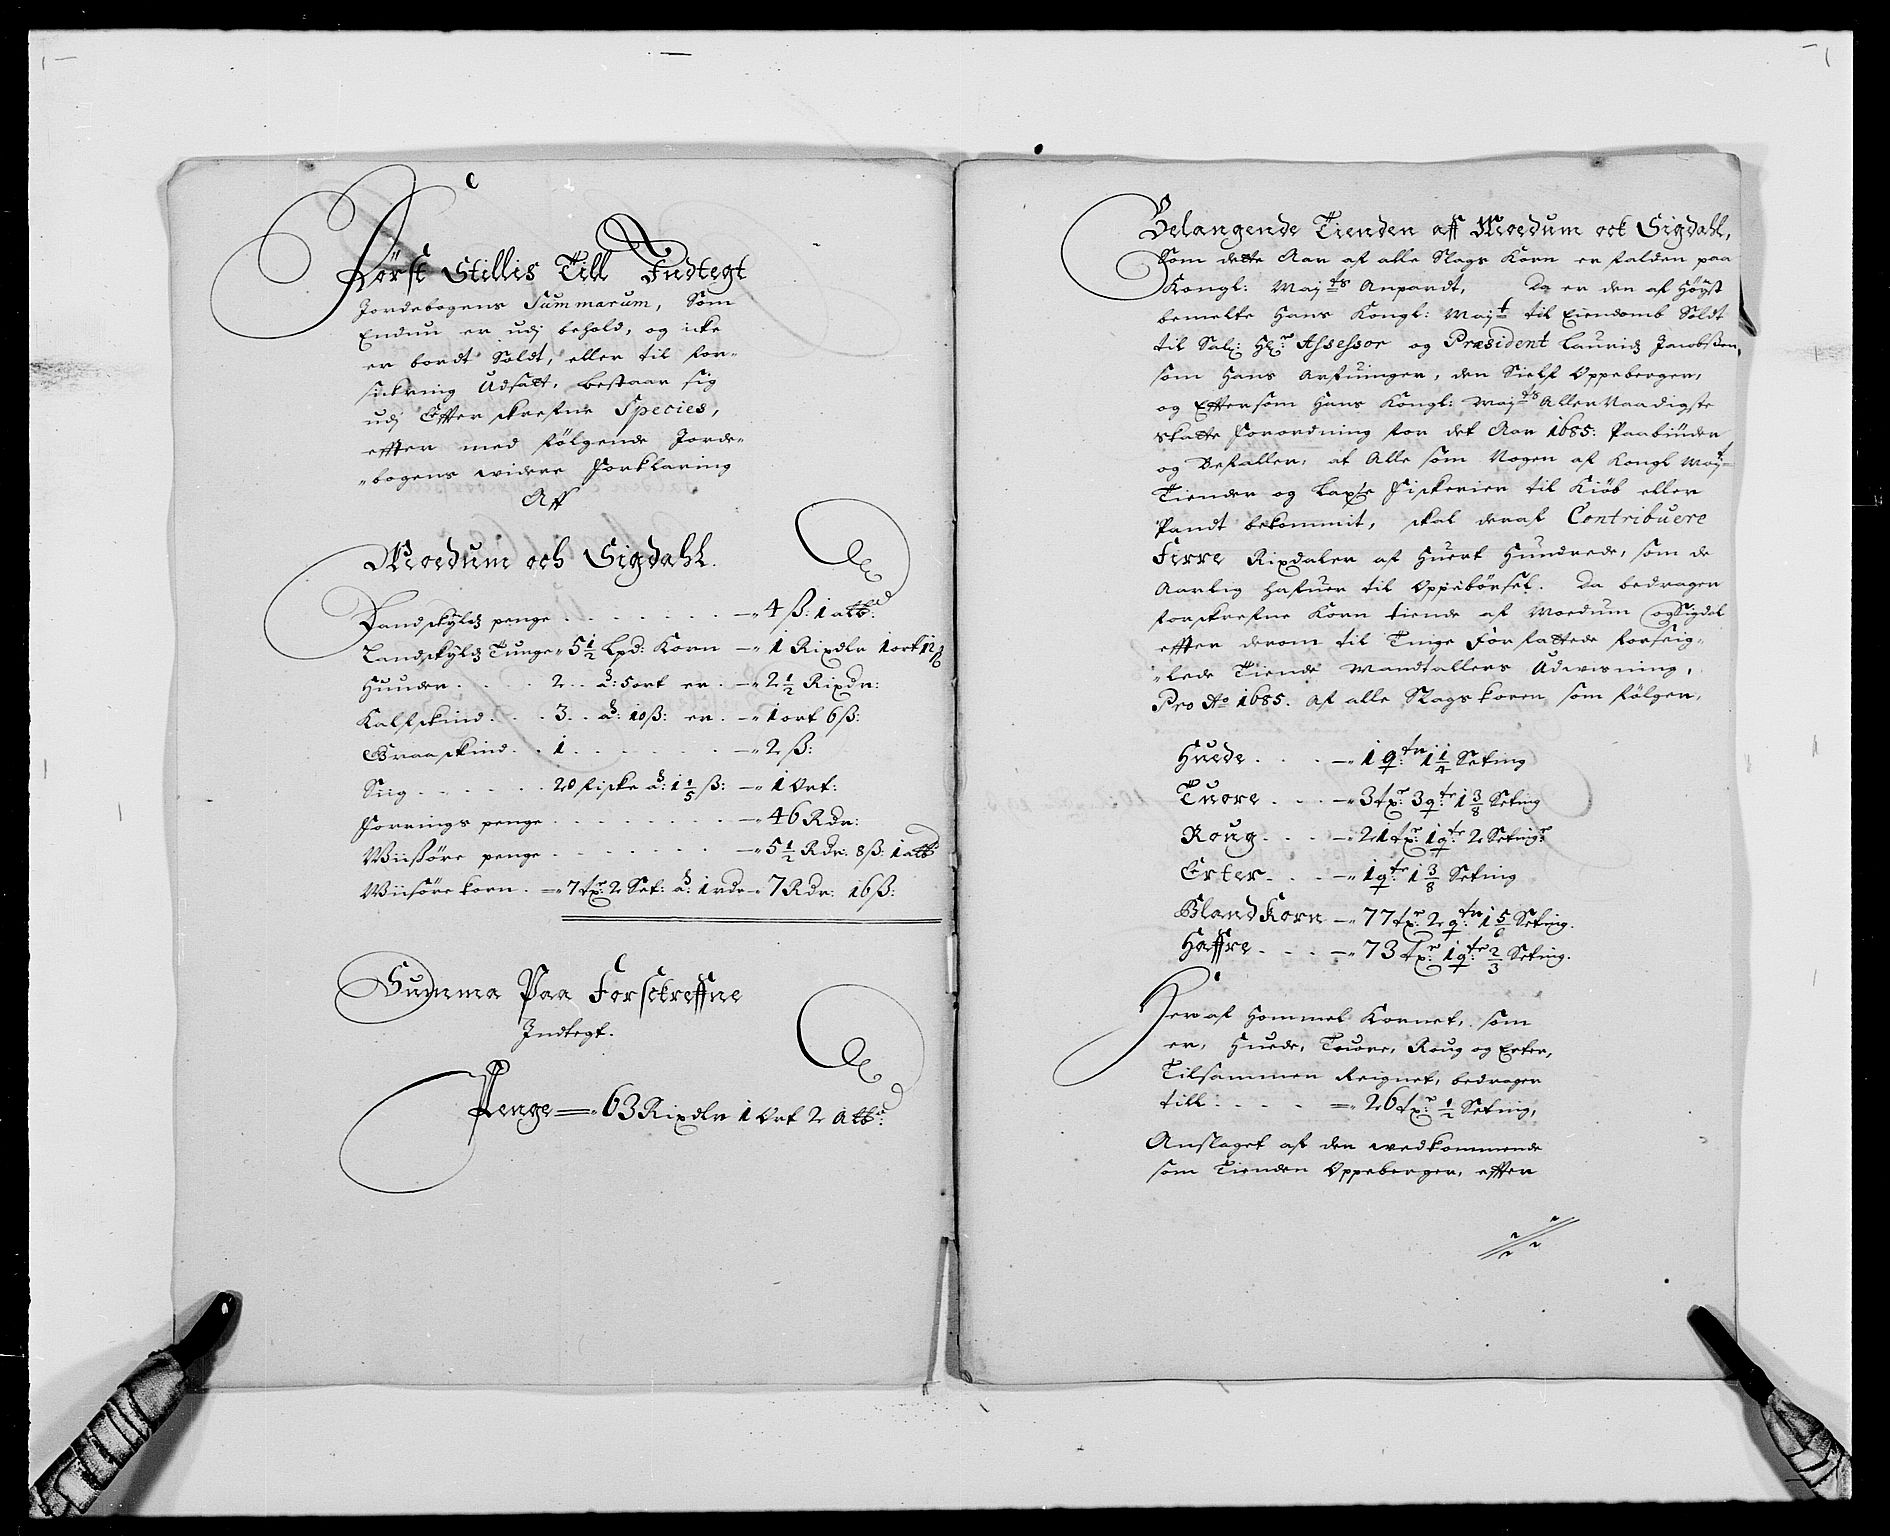 Först Stillis Till Indtegt
Jordebogens Summarum, Som
Endnu er udj behold, og icke
er bordt Soldt, eller til for-
sickring Udsatt, bestaar sig
udj Effterskrefne Species,
effter med fölgende Jorde-
bogens widere Forklaring
Aff
Moedum och Sigdahl.
Landskyldz penge . . . . . . . — 4 ß: 1 alb:
Landskyldz Tunge 5 1/2 Lpd: Korn — 1 Rixdlr 1 ort 12 ß
Huuder . . . . 2 . . â: 5 ort er . — 2 1/2 Rixdr:
Kalfskind . . . 3 . . â: 10 ß: er . — 1 ort 6 ß:
Graaskind . . 1 . . . . . . — 2 ß:
Siig . . . . . . 20 fiske â: 1 1/5 ß: — 1 Ort:
Forrings penge . . . . . . . . — 46 Rdr:
Wiissöre penge . . . . . . . — 5 1/2 Rdr: 8 ß: 1 alb
Wiisöre korn . = 7 tr: 2 Set: â: 1 rdr — 7 Rdr: 16 ß:
Summa Paa Forsckreffne
Indtegt.
Penge = 63 Rixdlr 1 Ort 2 Alb:
Belangende Tienden aff Moedum ock Sigdahl,
Som dette Aar af alle Slags Korn er falden paa
Kongl: Mayts Anpardt, Da er den af Höyst
bemelte Hans Kongl: Mayt til Eiendomb Soldt
til Sal: Hr Assessor og Præsident Lauridz Jacobssen,
som Hans Arfuinger, den Sielf Oppeberger,
og Eftersom Hans Kongl: Mayts AllerNaadigste
Skatte Forordning for det Aar 1685: Paabiuder
og Befaller, at Alle som Nogen af Kongl Mayt
Tiender og Laxe Fiskerier til Kiöb eller
Pandt bekommit, skal deraf Contribuere
Firre Rixdaler af Huert Hundrede, som de
Aarlig Hafuer til Oppebörsel. Da bedrager
forskrefne Korn tiende af Moedum og Sigdal
effter derom til Tinge Forfattede forseig-
lede Tiende Mandtallers Udwisning,
Pro Ao 1685. af alle Slags koren, som fölger,
Huede . . . . — 1 qtr: 1 1/4 Seting
Tuore . . . — 3 tr: 3 qtr: 1 3/8 Seting
Roug . . . . — 21 tr: 1 qtr: 2 Seting:
Erter . . . — 1 qtr: 1 3/8 Seting
Bland Korn — 77 tr: 2 qtr: 1 5/6 Seting.
Haffre . . . . — 73 tr: 1 qtr: 2/3 Seting.
Her af Hommel Kornet, som
er, Huede, Tuore, Roug og Erter,
Tilsammen Reignet, bedrager
till . . . . = 26 tr: 1/2 Seting,
Anslaget af den wedkommende
som Tienden Oppeberger, effter